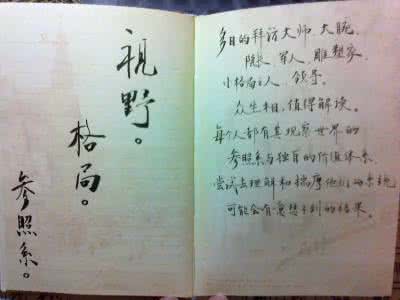 视野。
格局。
参照系。
多日的拜访大师、大腕、
院长、军人、雕塑家、
小格局之人、领导。
众生相，值得解读。
每个人都有其观察世界的
参照系与独自的价值体系
尝试去理解和揣摩他们的系统
可能会有意想不到的结果。